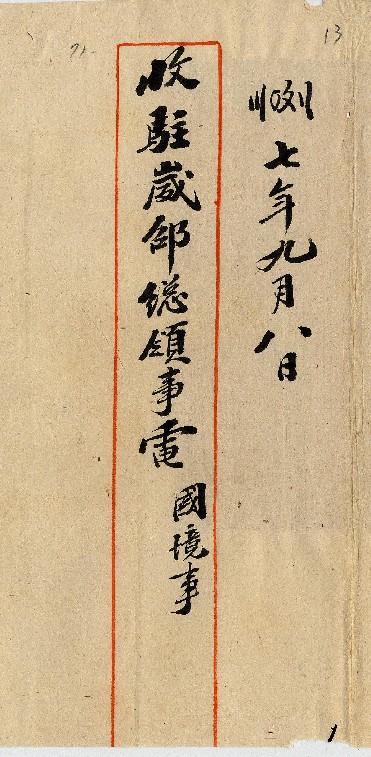 13
七年九月八日
收駐崴邵總領事電
國境事